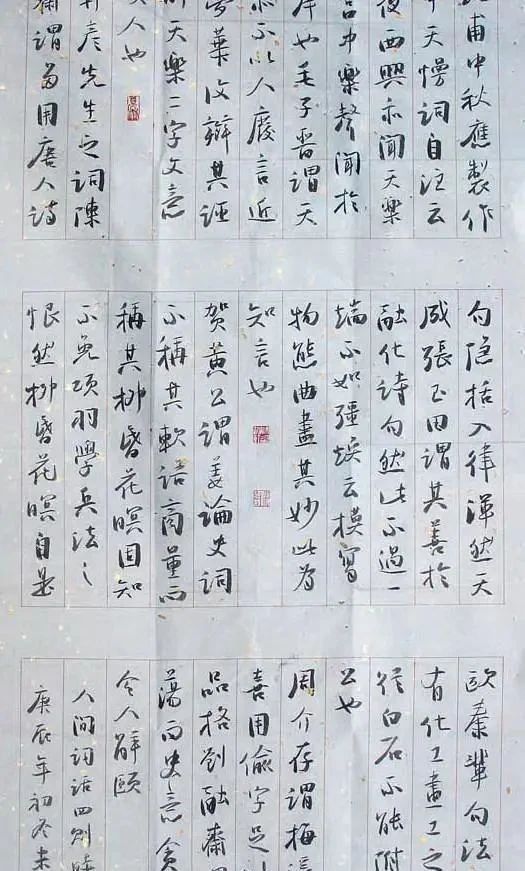 甫中秋應製作
中天慢詞自注云
夜西興亦聞天樂
宮中樂聲聞於
岸也毛子晉謂天
亦不以人廢言近
華復辯其誣
天樂二字文意
人也
彥先生之詞陳
齋謂多用唐人詩
句隱括入律渾然天
成張玉田謂其善於
融化詩句然此不過一
端不如彊煥云模寫
物態曲盡其妙此為
知言也
賀黃公謂姜論史詞
不稱其軟語商量而
稱其柳昏花暝固知
不免項羽學兵法之
恨然柳昏花暝自是
歐秦輩句法
有化工畫工之
從白石不能附
公也
周介存謂梅溪
喜用偷字足
品格劉融齋
蕩而史意貪
令人解頤
人間詞話四則
庚辰年初冬